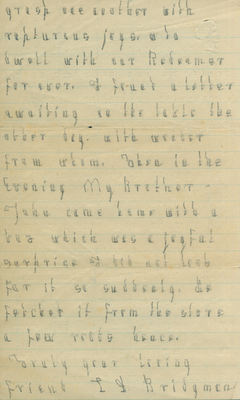 grasp one another with
rapturous joys, & to
dwell with our Redeemer
for ever. I found a letter
awaiting on the table the
other day. with wonder
from whom. Then in the
Evening My Brother
John came home with a
box which was a joyful
surprise I did not look
for it so suddenly. He
fetched it from the store
a few rods hence.
Truly your loving
friend L D Bridgman